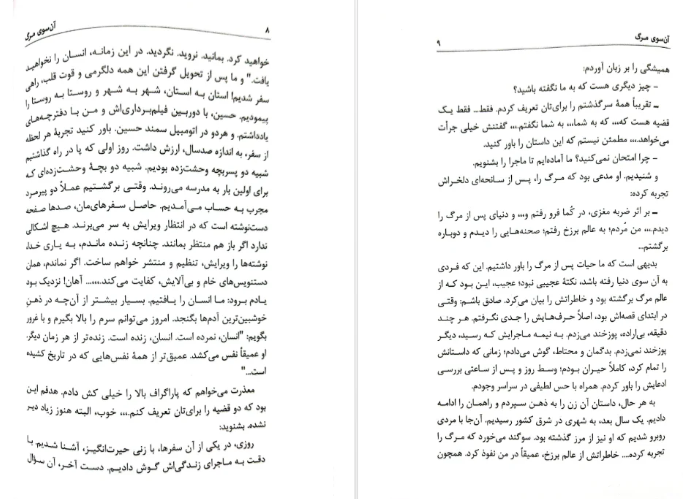 ۸
آن‌سوی مرگ
خواهید کرد. بمانید. نروید. نگردید. در این زمانه، انسان را نخواهید
یافت." و ما پس از تحویل گرفتن این همه دلگرمی و قوت قلب، راهی
سفر شدیم! استان به استان، شهر به شهر و روستا به روستا را
پیمودیم. حسین، با دوربین فیلم‌برداری‌اش و من با دفترچه‌های
یادداشتم. و هردو در اتومبیل سمند حسین. باور کنید تجربهٔ هر لحظه
از سفر، به اندازه صدسال، ارزش داشت. روز اولی که پا در راه گذاشتیم
شبیه دو پسربچه وحشت‌زده بودیم. شبیه دو بچهٔ وحشت‌زده‌ای که
برای اولین بار به مدرسه می‌روند. وقتی برگشتیم عملاً دو پیرمرد
مجرب به حساب می‌آمدیم. حاصل سفرهای‌مان، صدها صفحه
دست‌نوشته است که در انتظار ویرایش به سر می‌برند. هیچ اشکالی
ندارد اگر باز هم منتظر بمانند. چنانچه زنده ماندم، به یاری خدا،
نوشته‌ها را ویرایش، تنظیم و منتشر خواهم ساخت. اگر نماندم، همان
دستنویس‌های خام و بی‌آلایش، کفایت می‌کند.... آهان! نزدیک بود
یادم برود: ما انسان را یافتیم. بسیار بیشتر از آن‌چه در ذهنِ
خوشبین‌ترین آدم‌ها بگنجد. امروز می‌توانم سرم را بالا بگیرم و با غرور
بگویم: "انسان، نمرده است. انسان، زنده است. زنده‌تر از هر زمان دیگر.
او عمیقاً نفس می‌کشد. عمیق‌تر از همهٔ نفس‌هایی که در تاریخ کشیده
است..."
معذرت می‌خواهم که پاراگراف بالا را خیلی کش دادم. هدفم این
بود که دو قضیه را برای‌تان تعریف کنم.،،، خوب، البته هنوز زیاد دیر
نشده. بشنوید:
روزی، در یکی از آن سفرها، با زنی حیرت‌انگیز، آشنا شدیم. با
دقت به ماجرای زندگی‌اش گوش دادیم. دست آخر، آن سؤال
آن‌سوی مرگ
۹
همیشگی را بر زبان آوردم:
– چیز دیگری هست که به ما نگفته باشید؟
ـ تقریباً همهٔ سرگذشتم را برای‌تان تعریف کردم. فقط... فقط یک
قضیه هست که،،، که به شما،،، به شما نگفتم،،، گفتنش خیلی جرأت
می‌خواهد.،،، مطمئن نیستم که این داستان را باور کنید.
– چرا امتحان نمی‌کنید؟ ما آماده‌ایم تا ماجرا را بشنویم.
و شنیدیم. او مدعی بود که مرگ را، پس از سانحه‌ای دلخراش
تجربه کرده:
ـ بر اثر ضربه مغزی، در کُما فرو رفتم و،،، و دنیای پس از مرگ را
دیدم.،،، من مُردم؛ به عالم برزخ رفتم؛ صحنه‌هایی را دیدم و دوباره
برگشتم...
بدیهی است که ما حیات پس از مرگ را باور داشتیم. این که فردی
به آن سوی دنیا رفته باشد، نکتهٔ عجیبی نبود؛ عجیب، این بود که از
عالم مرگ برگشته بود و خاطراتش را بیان می‌کرد. صادق باشم: وقتی
در ابتدای قصه‌اش بود، اصلاً حرف‌هایش را جدی نگرفتم. هر چند
دقیقه، بی‌اراده، پوزخند می‌زدم. به نیمه ماجرایش که رسید، دیگر
پوزخند نمی‌زدم. بدگمان و محتاط، گوش می‌دادم؛ زمانی که داستانش
را تمام کرد، کاملاً حیران بودم؛ وسط روز و پس از ساعتی بررسی
ادعایش را باور کردم. همراه با حس لطیفی در سراسر وجودم.
به هر حال، داستان آن زن را به ذهن سپردم و راهمان را ادامه
دادیم. یک سال بعد، به شهری در شرق کشور رسیدیم. آن‌جا با مردی
روبرو شدیم که او نیز از مرز گذشته بود. سوگند می‌خورد که مرگ را
تجربه کرده... خاطراتش از عالم برزخ، عمیقاً در من نفوذ کرد. همچون